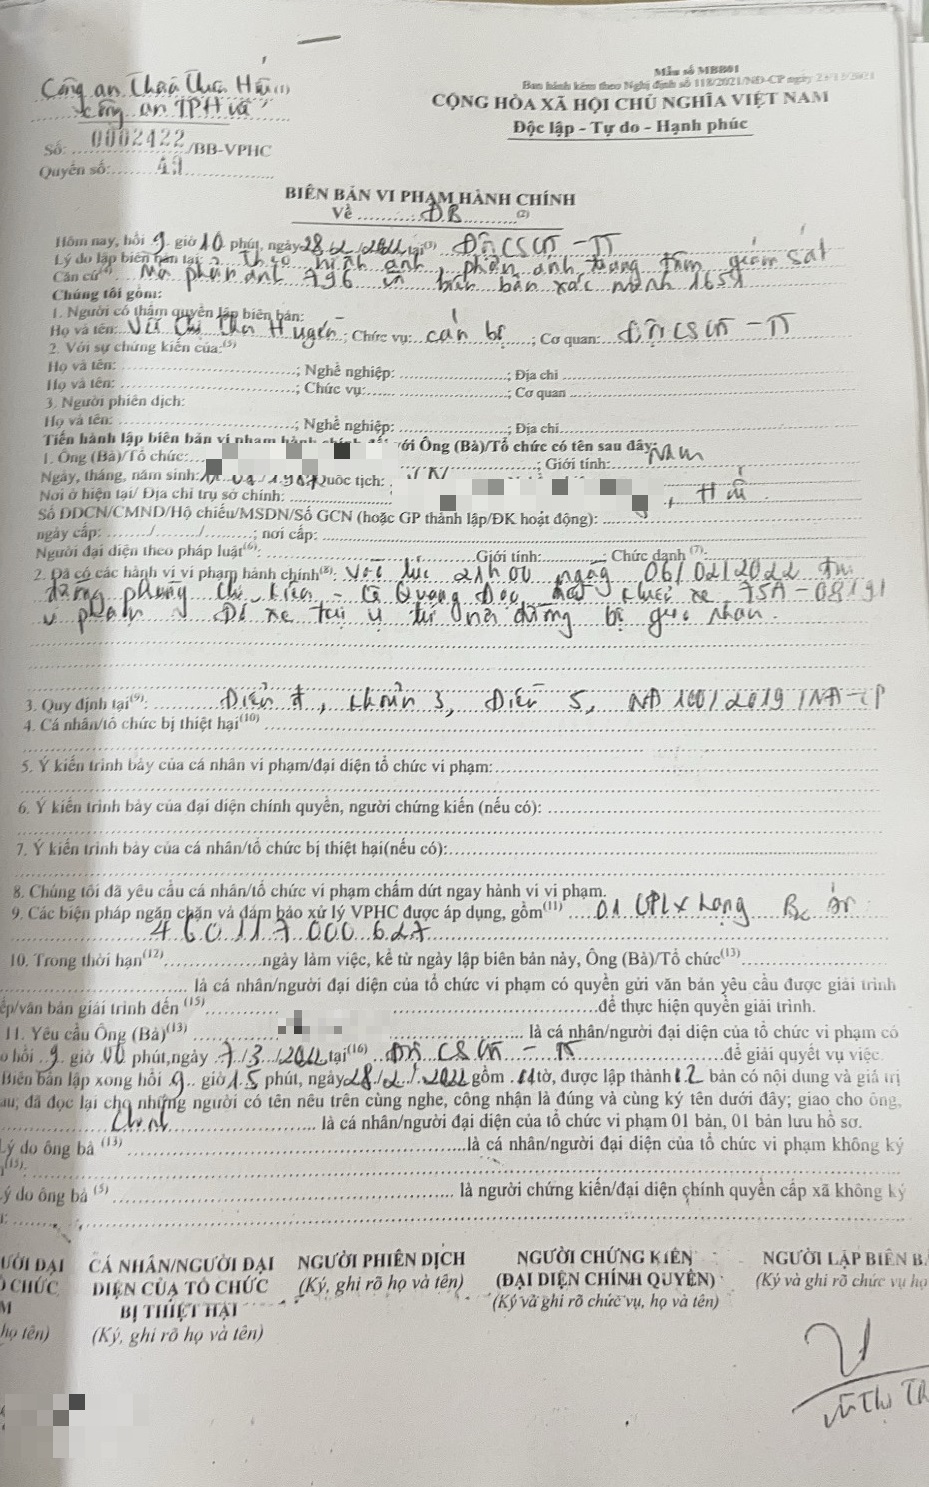 Mẫu số MBB01
Ban hành kèm theo Nghị định số 118/2021/NĐ-CP ngày 23/12/2021
Công an Thừa Thiên Huế (1)
Công an TP Huế
CỘNG HÒA XÃ HỘI CHỦ NGHĨA VIỆT NAM
Độc lập - Tự do - Hạnh phúc
Số: 0002422/BB-VPHC
Quyển số:
BIÊN BẢN VI PHẠM HÀNH CHÍNH
Về ĐB (2)
Hôm nay, hồi 9 giờ 10 phút, ngày 28/2/2022 tại(3) Đội CSGT - TT
Lý do lập biên bản tại: Theo hình ảnh, phản ánh trung tâm giám sát
Căn cứ(4) Mã phản ánh 796 và biên bản xác minh
Chúng tôi gồm:
1. Người có thẩm quyền lập biên bản:
Họ và tên: Vũ Thị; Chức vụ: cán bộ; Cơ quan: Đội CSGT - TT
2. Với sự chứng kiến của:(5)
Họ và tên: ; Nghề nghiệp: ; Địa chỉ
Họ và tên: ; Chức vụ: ; Cơ quan
3. Người phiên dịch:
Họ và tên: ; Nghề nghiệp: ; Địa chỉ
Tiến hành lập biên bản vi phạm hành chính đối với Ông (Bà)/Tổ chức có tên sau đây:
1. Ông (Bà)/Tổ chức: ; Giới tính: Nam
Ngày, tháng, năm sinh: Quốc tịch: VN
Nơi ở hiện tại/ Địa chỉ trụ sở chính: , Huế
Số ĐDCN/CMND/Hộ chiếu/MSDN/Số GCN (hoặc GP thành lập/ĐK hoạt động):
ngày cấp: / / ; nơi cấp:
Người đại diện theo pháp luật(6): Giới tính: ; Chức danh (7):
2. Đã có các hành vi vi phạm hành chính(8): Vào lúc 21h00 ngày 06/02/2022 tại
đường Phùng Chí Kiên - Lê Quang Đạo, xe 75A-08191
vi phạm: Để xe tại vị trí nơi đường bị
3. Quy định tại(9): Điểm đ, khoản 3, Điều 5, NĐ 100/2019/NĐ-CP
4. Cá nhân/tổ chức bị thiệt hại(10)
5. Ý kiến trình bày của cá nhân vi phạm/đại diện tổ chức vi phạm:
6. Ý kiến trình bày của đại diện chính quyền, người chứng kiến (nếu có):
7. Ý kiến trình bày của cá nhân/tổ chức bị thiệt hại(nếu có):
8. Chúng tôi đã yêu cầu cá nhân/tổ chức vi phạm chấm dứt ngay hành vi vi phạm.
9. Các biện pháp ngăn chặn và đảm bảo xử lý VPHC được áp dụng, gồm(11) 01 GPLX hạng
460117000627
10. Trong thời hạn(12) ngày làm việc, kể từ ngày lập biên bản này, Ông (Bà)/Tổ chức(13)
là cá nhân/người đại diện của tổ chức vi phạm có quyền gửi văn bản yêu cầu được giải trình
ếp/văn bản giải trình đến (15) để thực hiện quyền giải trình.
11. Yêu cầu Ông (Bà)(13) là cá nhân/người đại diện của tổ chức vi phạm có
o hồi 9 giờ 00 phút,ngày 7/3/2022 tại(16) Đội CSGT - TT để giải quyết vụ việc.
Biên bản lập xong hồi 9 giờ 15 phút, ngày 28/2/2022 gồm 01 tờ, được lập thành 02 bản có nội dung và giá trị
au; đã đọc lại cho những người có tên nêu trên cùng nghe, công nhận là đúng và cùng ký tên dưới đây; giao cho ông,
là cá nhân/người đại diện của tổ chức vi phạm 01 bản, 01 bản lưu hồ sơ.
Lý do ông bà (13) là cá nhân/người đại diện của tổ chức vi phạm không ký
(13):
ý do ông bà (5) là người chứng kiến/đại diện chính quyền cấp xã không ký
ƯỜI ĐẠI CÁ NHÂN/NGƯỜI ĐẠI NGƯỜI PHIÊN DỊCH NGƯỜI CHỨNG KIẾN NGƯỜI LẬP BIÊN B
CHỨC DIỆN CỦA TỔ CHỨC (Ký, ghi rõ họ và tên) (ĐẠI DIỆN CHÍNH QUYỀN) (Ký và ghi rõ chức vụ họ
M BỊ THIỆT HẠI (Ký và ghi rõ chức vụ, họ và tên)
họ tên) (Ký, ghi rõ họ và tên)
Vũ Thị Th